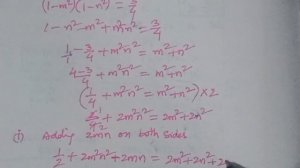 (1-m²)(1-n²) = 3/4
1-n²-m²+m²n² = 3/4
1/1 - 3/4 + m²n² = m²+n²
4-3/4 + m²n² = m²+n²
(1/4 + m²n² = m²+n²) ×2
2/4 + 2m²n² = 2m²+2n²
(i) Adding 2mn on both sides
1/2 + 2m²n² + 2mn = 2m²+2n²+2